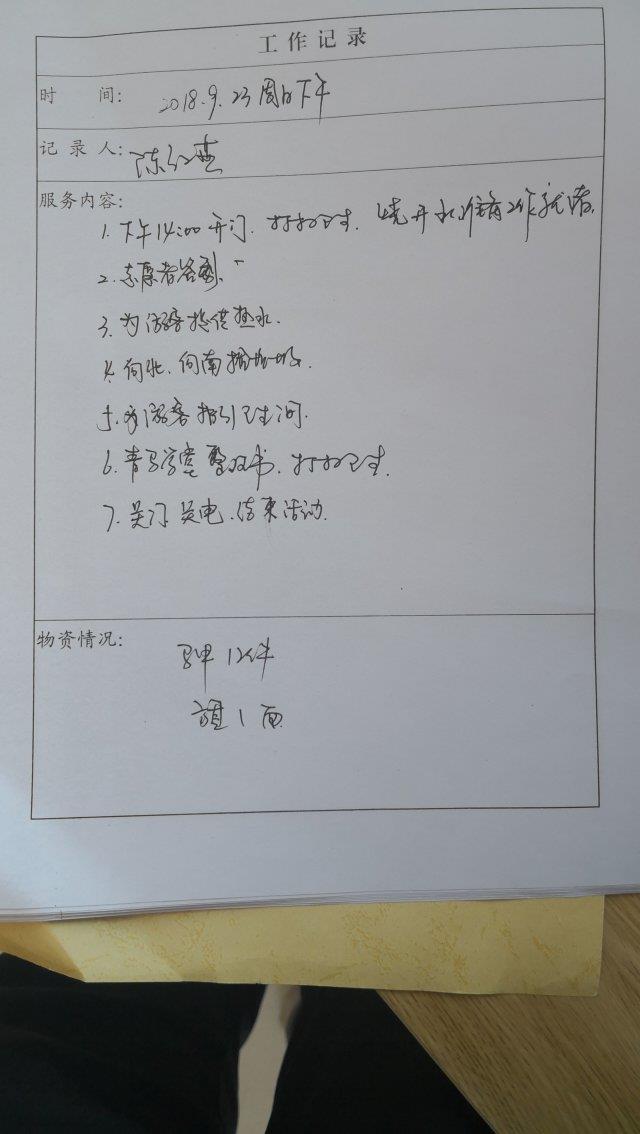 工作记录
时 间: 2018.9.23 周日下午
记录人: 陈红燕
服务内容:
1. 下午14:00开门、打扫卫生、烧开水准备工作就绪.
2. 志愿者签到.
3. 为游客提供热水.
4. 向北、向南捡垃圾.
5. 为游客指引卫生间.
6. 青马学堂整理书、打扫卫生.
7. 关门 关电、结束活动.
物资情况:
马甲 12件
旗 1 面